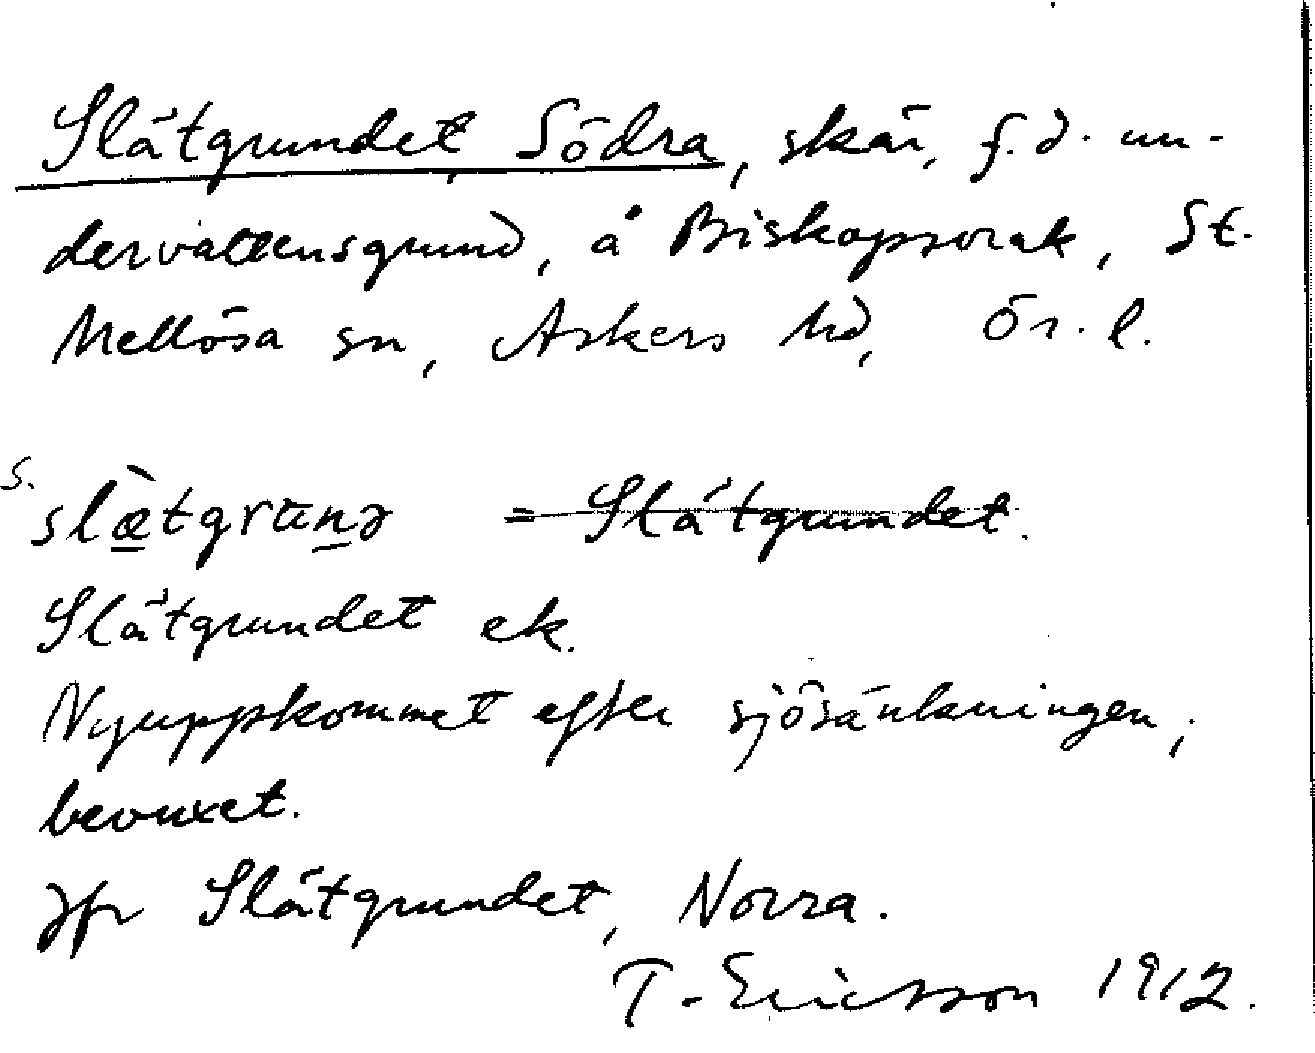 Slätgrundet, Södra, skär, f.d. un-
dervattensgrund, å Biskopsorak, St.
Mellösa sn, Askers hd, Ör. l.
s.
slæ̀tgrūnə = Slätgrundet.
Slätgrundet ek.
Nyuppkommet efter sjösänkningen,
bevuxet.
Jfr Slätgrundet, Norra.
T. Ericsson 1912.